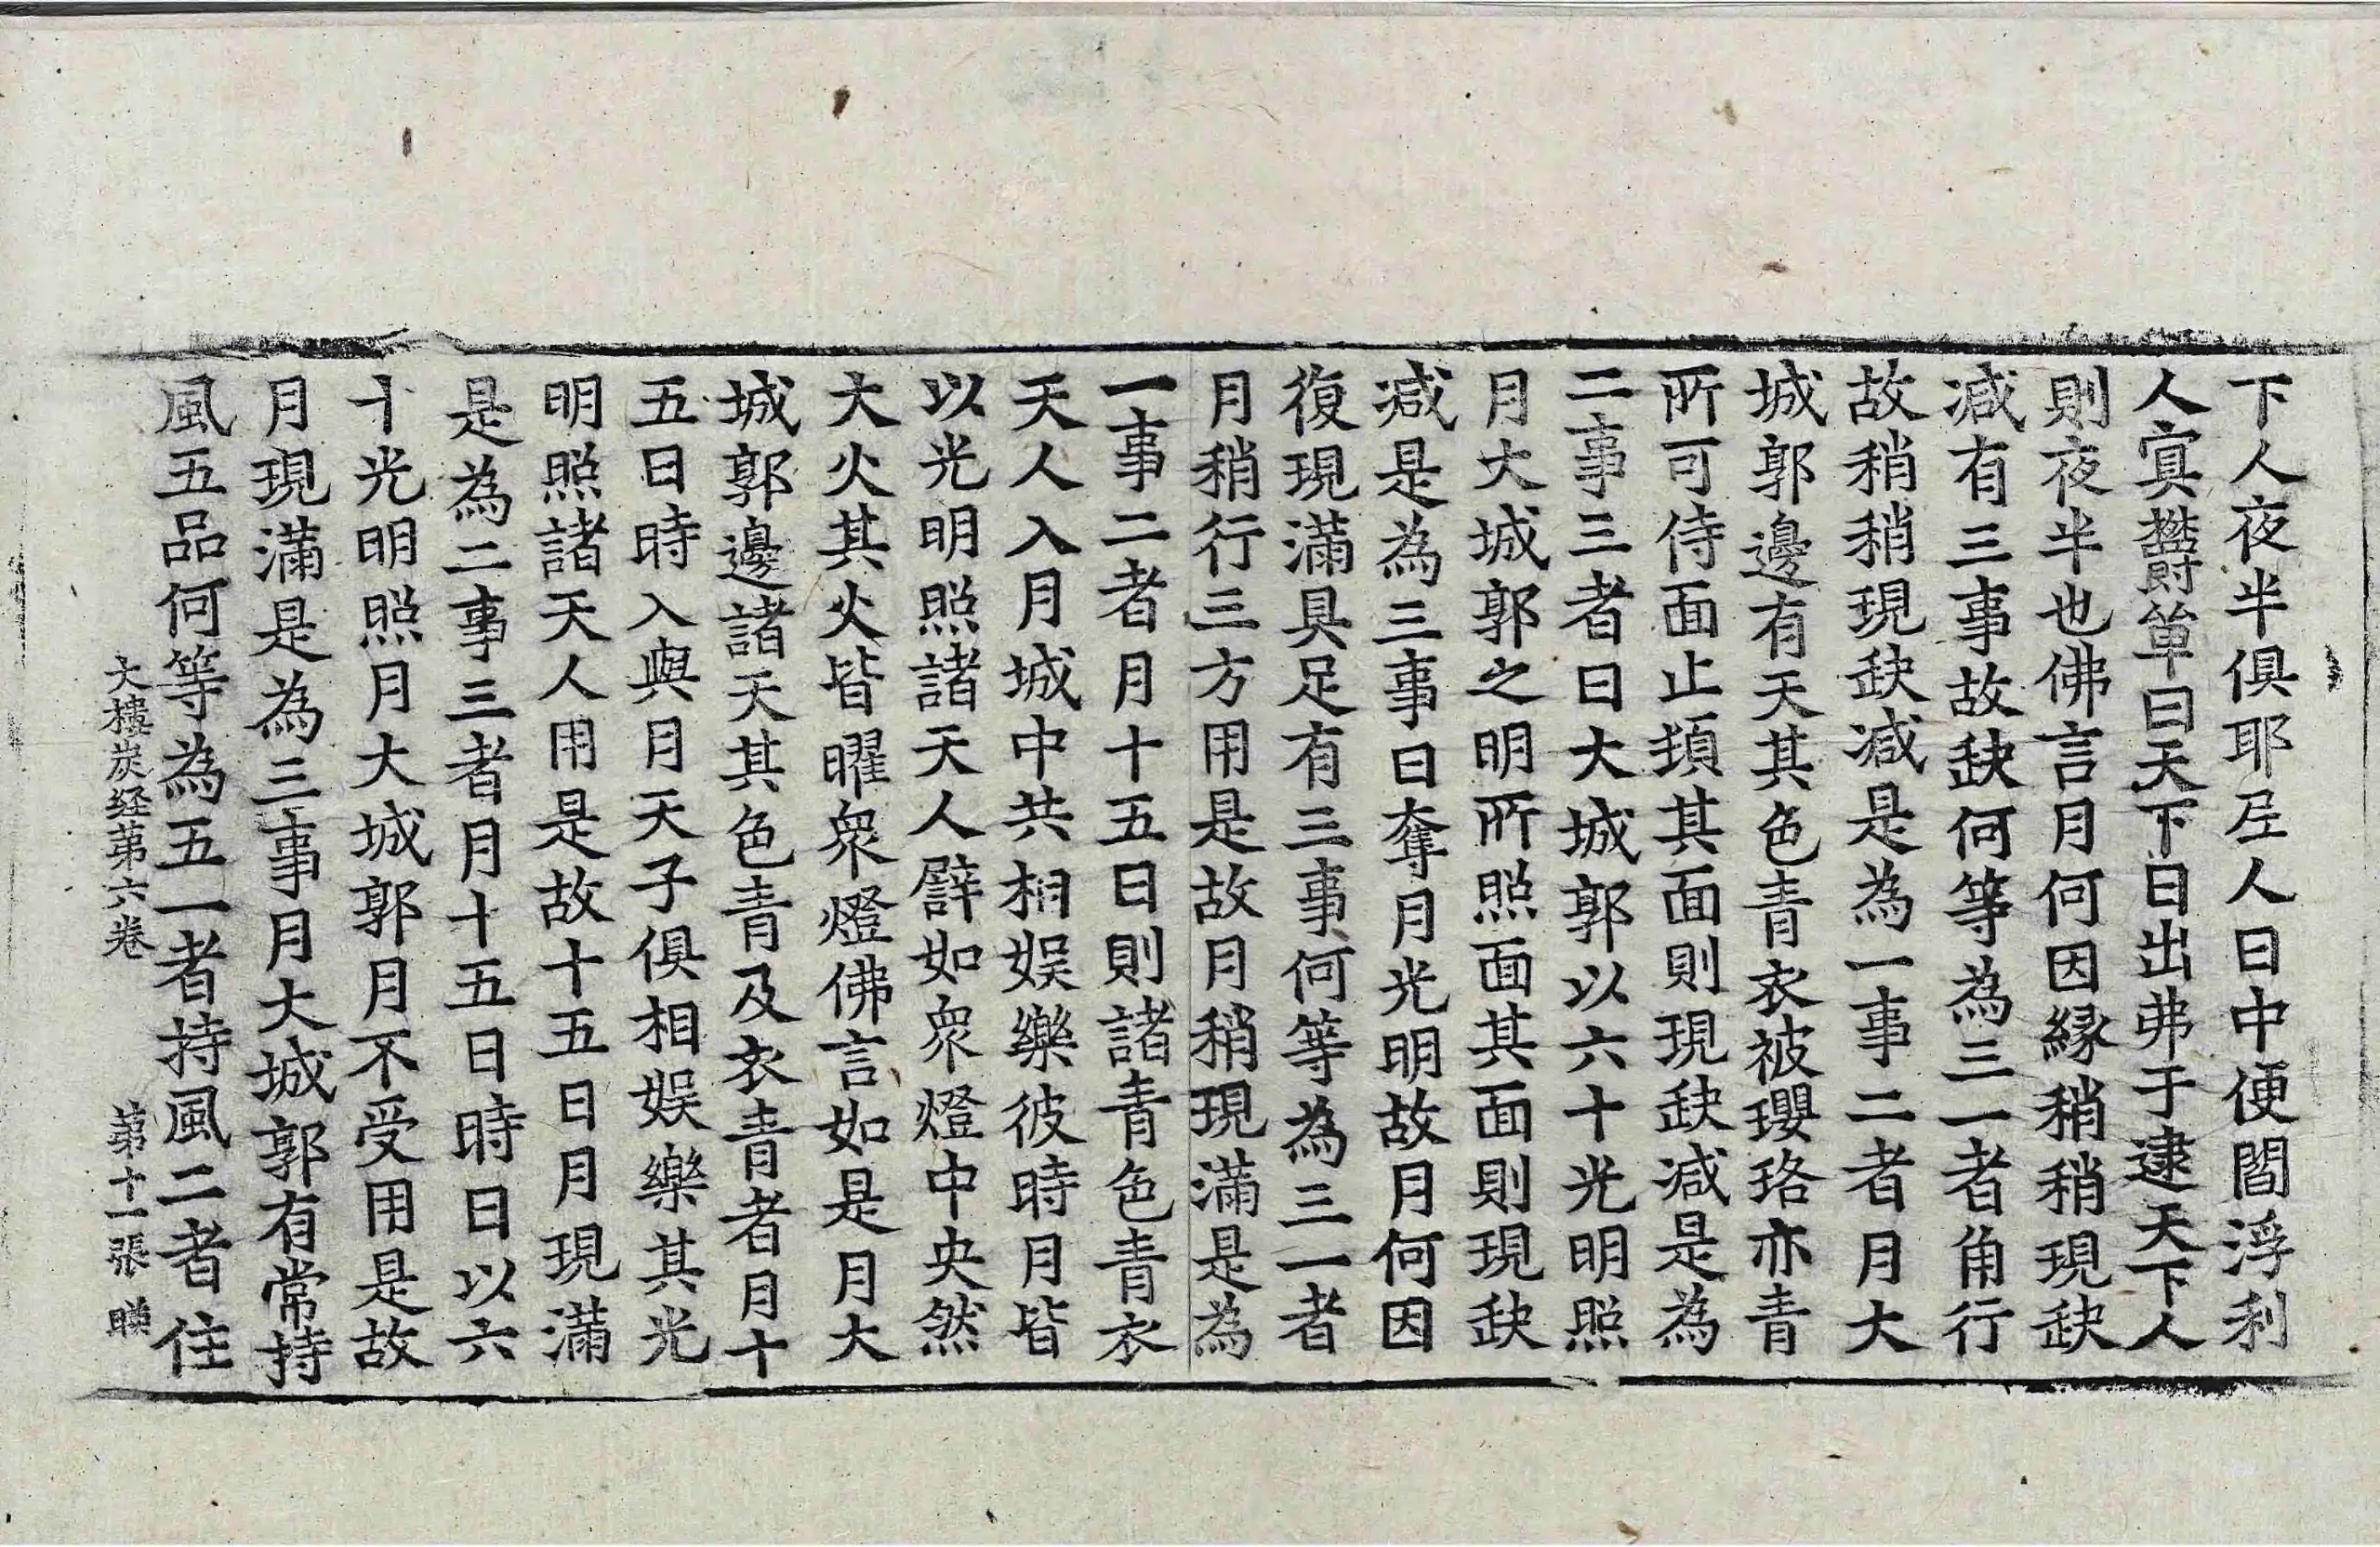 下人夜半俱耶尼人日中便閻浮利
人寘欝單曰天下日出弗于逮天下人
則夜半也佛言月何因緣稍稍現缺
减有三事故缺何等為三一者角行
故稍稍現缺减是為一事二者月大
城郭邊有天其色青衣被瓔珞亦青
所可侍面止頭其面則現缺减是為
二事三者日大城郭以六十光明照
月大城郭之明所照面其面則現缺
减是為三事日奪月光明故月何因
復現滿具足有三事何等為三一者
月稍行三方用是故月稍現滿是為
一事二者月十五日則諸青色青衣
天人入月城中共相娛樂彼時月皆
以光明照諸天人譬如衆燈中央然
大火其火皆曜衆燈佛言如是月大
城郭邊諸天其色青及衣青者月十
五日時入與月天子俱相娛樂其光
明照諸天人用是故十五日月現滿
是為二事三者月十五日時日以六
十光明照月大城郭月不受用是故
月現滿是為三事月大城郭有常持
風五品何等為五一者持風二者住
大樓炭経苐六卷 苐十一張